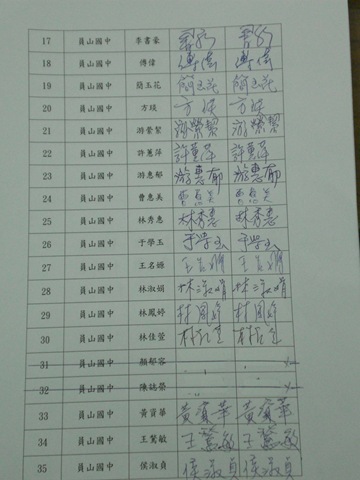 17 員山國中 李書豪
18 員山國中 傅偉 傅偉 傅偉
19 員山國中 簡玉花 簡玉花 簡玉花
20 員山國中 方琰 方琰 方琰
21 員山國中 游縈絜 游縈絜 游縈絜
22 員山國中 許蕙萍 許蕙萍 許蕙萍
23 員山國中 游惠郁 游惠郁 游惠郁
24 員山國中 曹惠美 曹惠美 曹惠美
25 員山國中 林秀惠 林秀惠 林秀惠
26 員山國中 于學玉 于學玉 于學玉
27 員山國中 王名嫄
28 員山國中 林淑娟 林淑娟 林淑娟
29 員山國中 林鳳婷
30 員山國中 林佳萱
31 員山國中 顏郁容
32 員山國中 陳誌榮
33 員山國中 黃資華 黃資華 黃資華
34 員山國中 王鶩敏 王鶩敏 王鶩敏
35 員山國中 侯淑貞 侯淑貞 侯淑貞